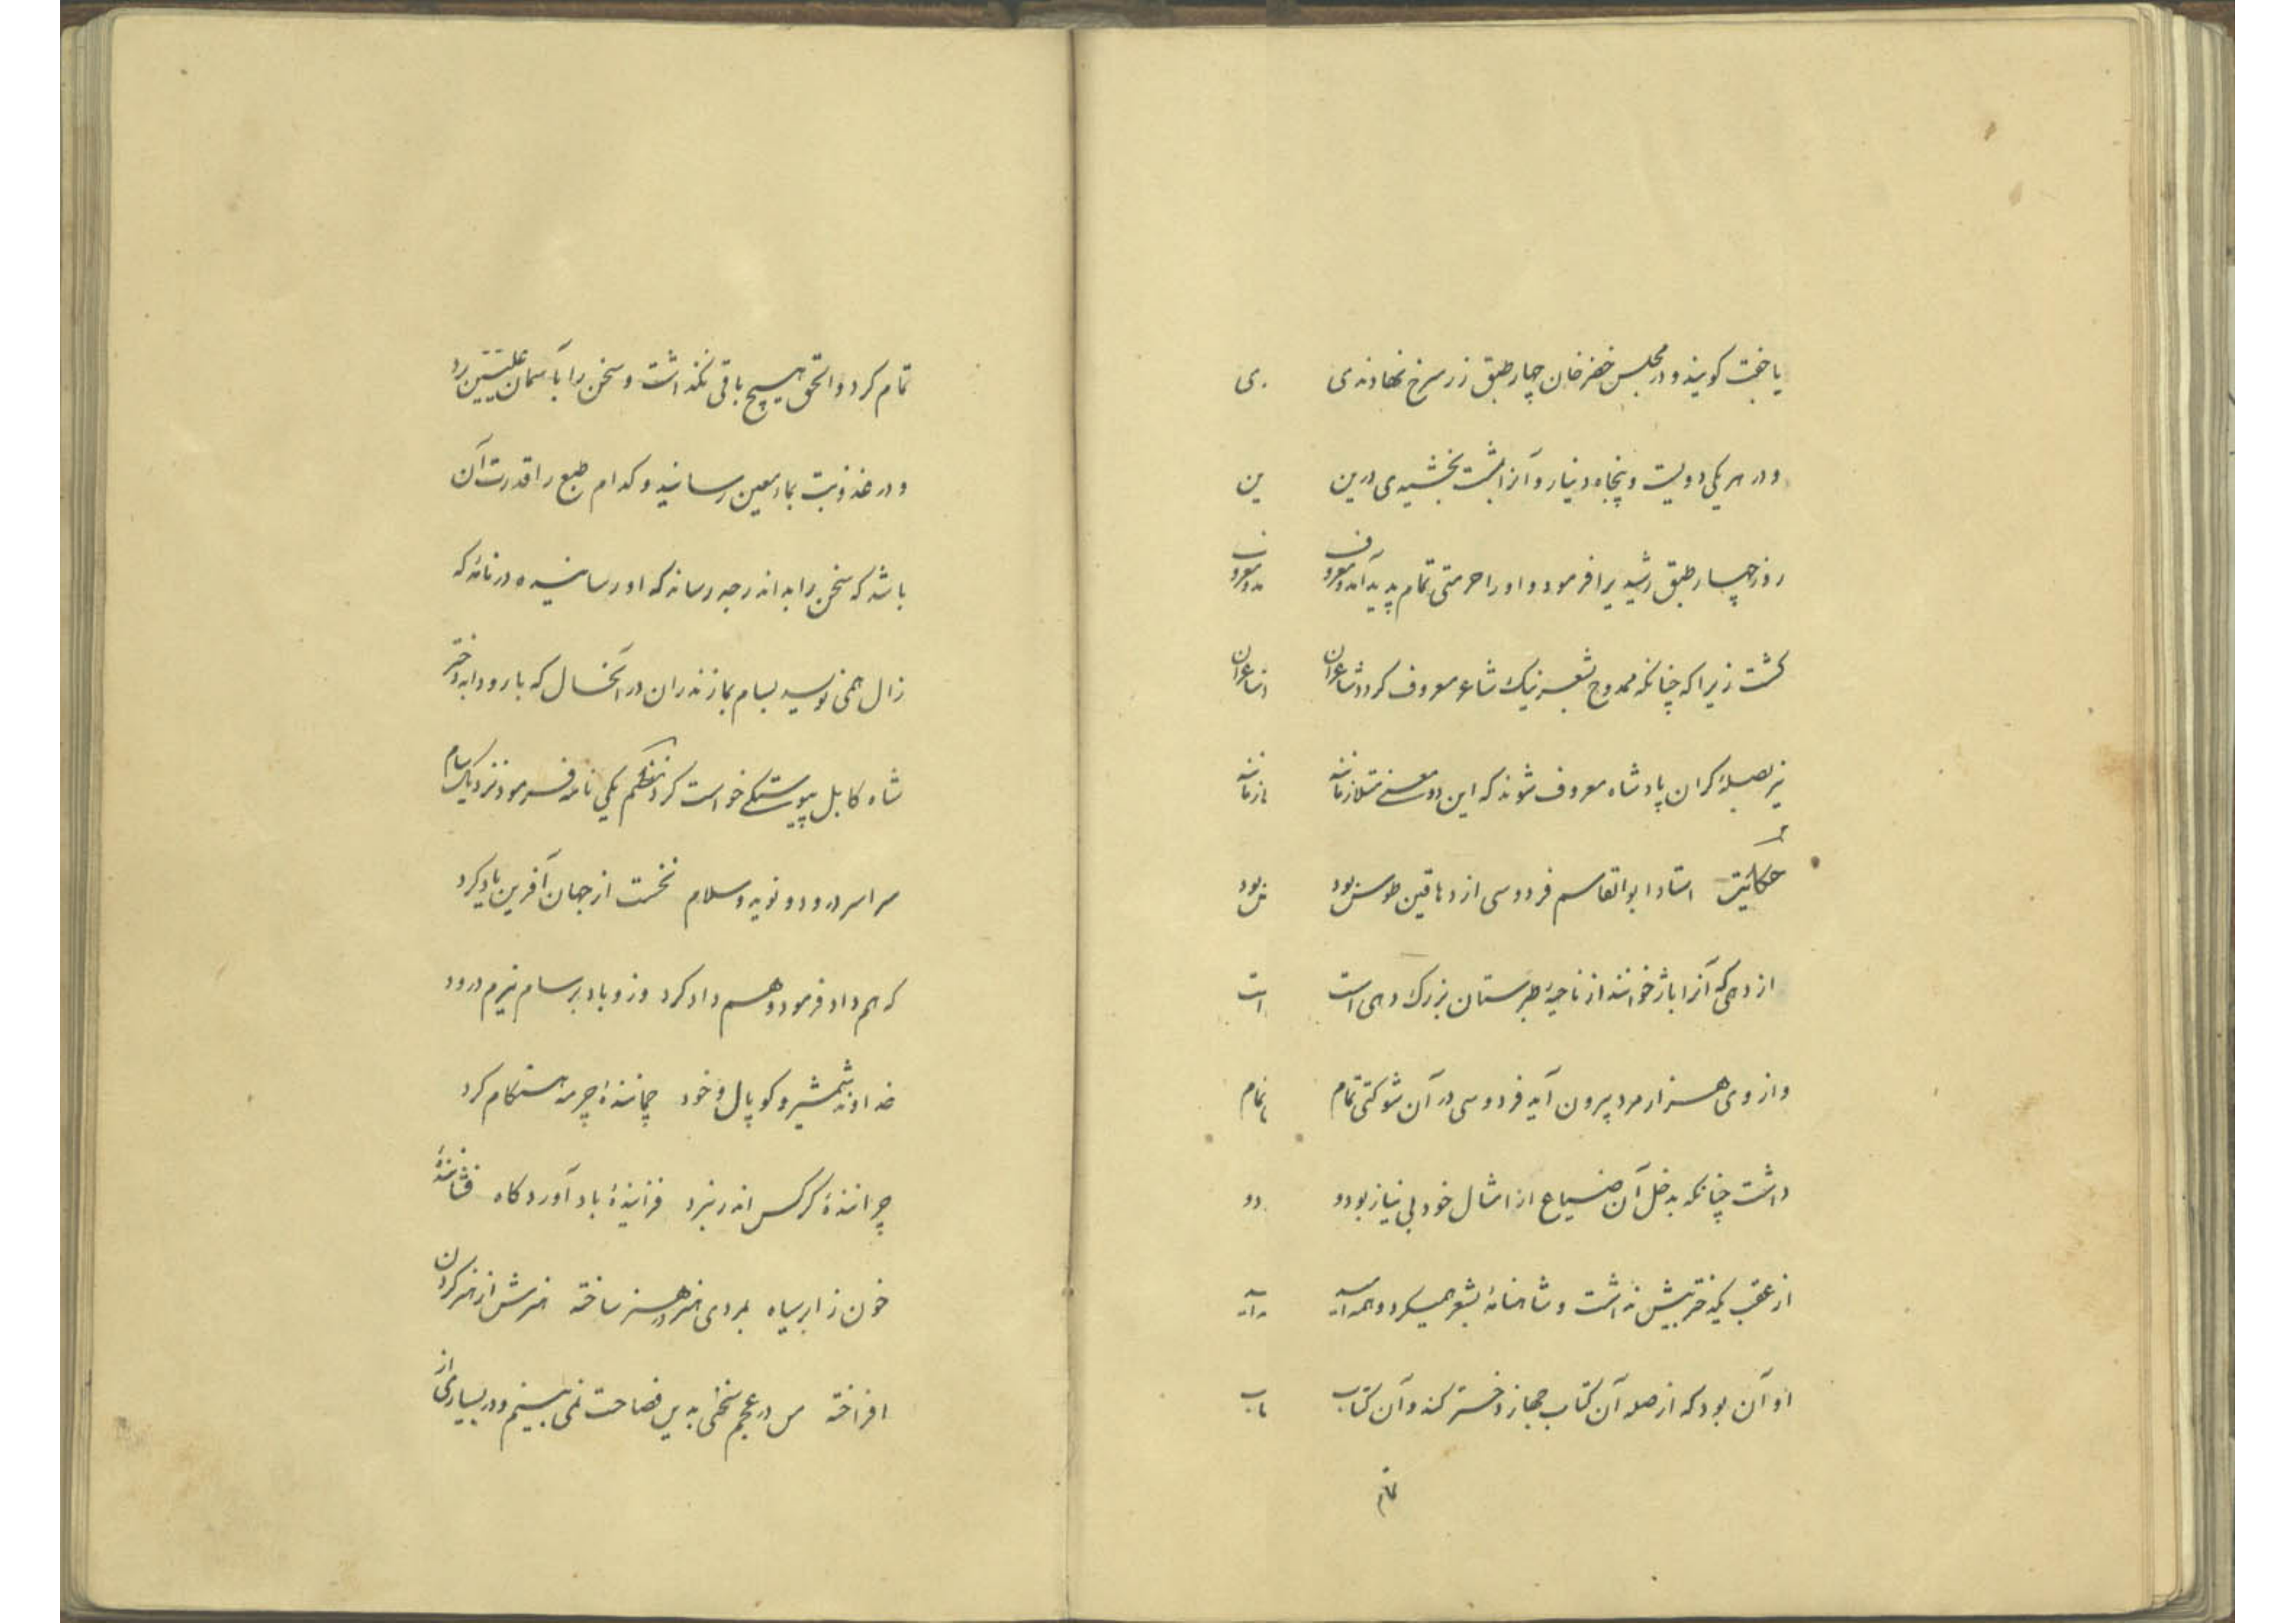 یا جفت کویند و در مجلس خضر خان چهار طبق زر سرخ نهادندی
و در هر یکی دویست و پنجاه دینار و آنرا بمشت بخشیدی درین
روز چهار طبق رشیدی را فرمود و او را حرمتی تمام پدید آمد و معروف
کشت زیرا که چنانکه ممدوح بشعر نیک شاعر معروف کردد شاعران
نیز بصلهٔ کران پادشاه معروف شوند که این دو معنی متلازمانند
حکایت استاد ابوالقاسم فردوسی از دهاقین طوس بود
از دهی که آنرا باژ خوانند از ناحیهٔ طبرستان بزرک دهی است
و از وی هزار مرد بیرون آید فردوسی در آن شوکتی تمام
داشت چنانکه بدخل آن ضیاع از امثال خود بی نیاز بود و
از عقب یکدختر بیش نداشت و شاهنامهٔ بشعر همیکرد و همه امید
او آن بود که از صله آن کتاب جهاز دختر کند و آن کتاب
تمام
تمام کرد و الحق هیچ باقی نکذاشت و سخن را بآسمان علیین برد
و در عذوبت بماء معین رسانید و کدام طبع را قدرت آن
باشد که سخن را بدان درجه رساند که او رسانیده در نامهٔ که
زال همی نویسد بسام بمازندران در آنحال که با رودابه دختر
شاه کابل پیوستکی خواست کرد نظم یکی نامه فرمود نزدیک سام
سراسر درود و نوید و سلام نخست از جهان آفرین یاد کرد
که هم داد فرمود و هم داد کرد وزو باد بر سام نیرم درود
خداوند شمشیر و کوپال و خود چمانندهٔ چرمه هنکام کرد
چرانندهٔ کرکس اندر نبرد فزایندهٔ باد آوردکاه فشانندهٔ
خون ز ابر سیاه بمردی هنر در هنر ساخته هنرش از هنر کردن
افراخته من در عجم سخنی بدین فصاحت نمی بینم و در بسیاری از